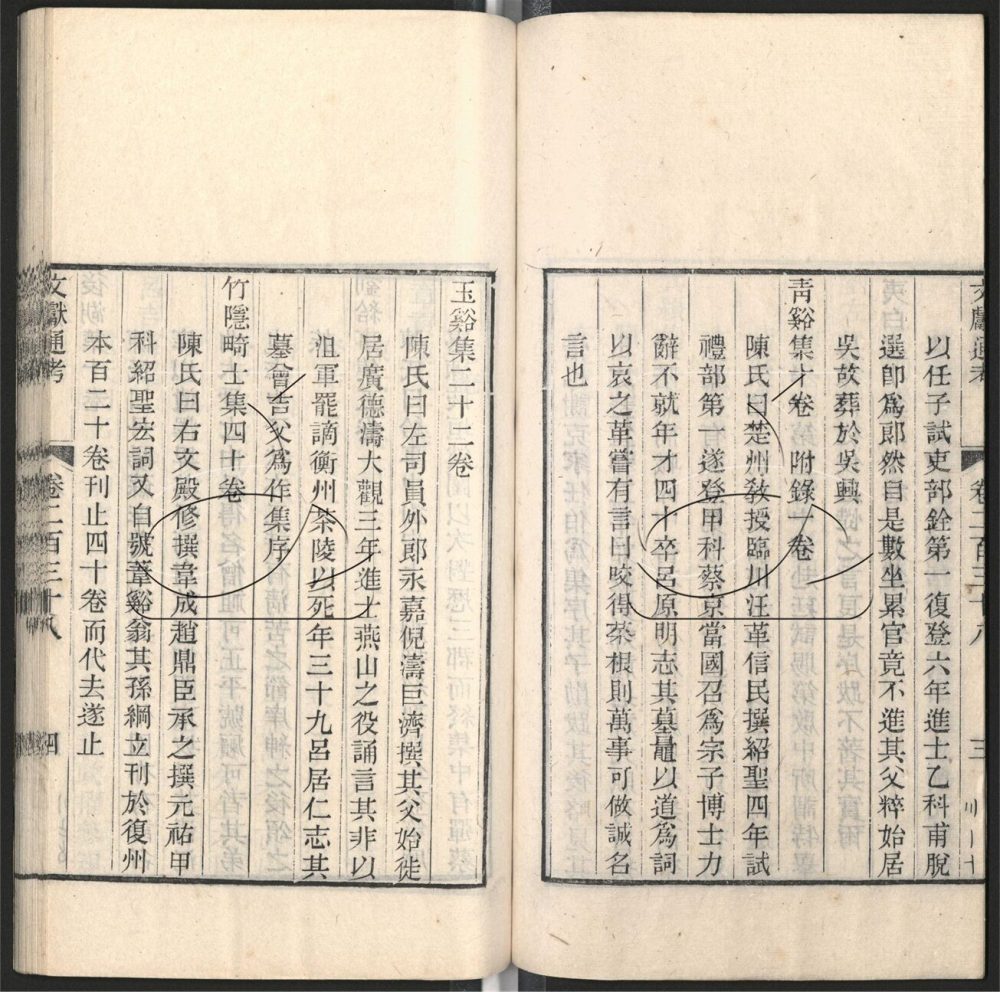 文獻通考 卷二百三十八 三
以任子試吏部銓第一復登六年進士乙科甫脫
選卽爲郎然自是數坐累官竟不進其父粹始居
吳故葬於吳興
青谿集十卷附錄一卷
陳氏曰楚州敎授臨川汪革信民撰紹聖四年試
禮部第一遂登甲科蔡京當國召爲宗子博士力
辭不就年才四十卒呂原明志其墓曁以道爲詞
以哀之革嘗有言曰咬得菜根則萬事可做誠名
言也
玉谿集二十二卷
陳氏曰左司員外郎永嘉倪濤巨濟撰其父始徙
居廣德濤大觀三年進士燕山之役誦言其非以
沮軍罷謫衡州茶陵以死年三十九呂居仁志其
墓曾吉父爲作集序
竹隱畸士集四十卷
陳氏曰右文殿修撰韋城趙鼎臣承之撰元祐甲
科紹聖宏詞又自號葦谿翁其孫綱立刊於復州
本百二十卷刊止四十卷而代去遂止
文獻通考 卷二百三十八 四